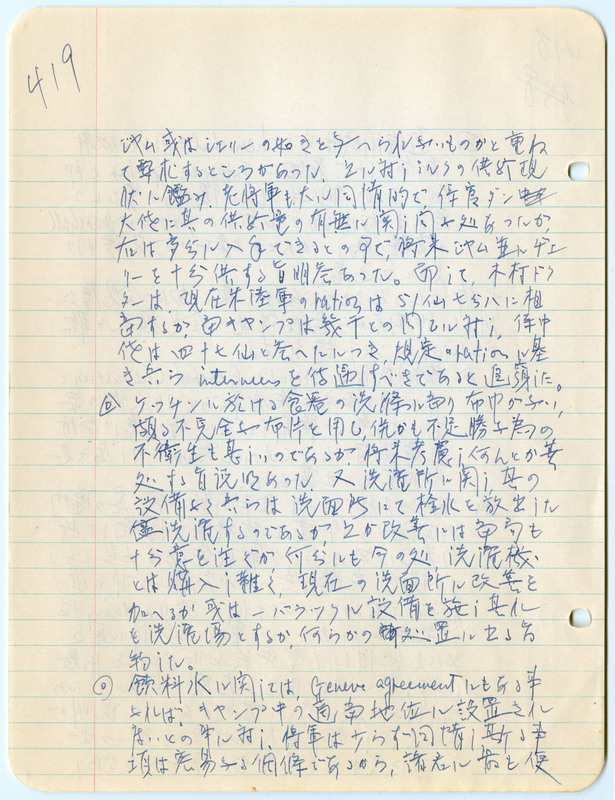 419
ジャム或はジェリーの如きを与へられないものかと重ね
て要求するところがあった。之に対しミルクの供給現
状に鑑み、将軍も大に同情的で、
大佐に其の供給量の有無に関し問ふ処あったが、
右は多分に入手できるとの事で、将来ジャム並にヂェ
リーを十分供する旨明答あった。而して、木村ドク
ターは、現在米陸軍のrationは51仙七分八に相
当するが当キャンプは幾干との問に対し、
佐は四十七仙と答へたにつき、規定のrationに基
き吾らinterneesを待遇すべきであると進言した。
ケッチンに於ける食器の洗滌に当り布巾がない、
頗る不完全な布片を用ひ、然かも不足勝な為の
不衛生も甚しいのであるが将来考慮し何んとか善
処する旨説明あった。又洗濯所に関し其の
設備なく吾らは洗面所にて栓水を放出した
儘洗濯するのであるが、之が改善には当局も
十分意を注ぐが、何分にも今の処、洗濯機
とは購入し難く、現在の洗面所に改善を
加へるか或は一バラックに設備を施し其れ
を洗濯場とするか、何らかの処置に出る旨
約した。
飲料水に関しては、Geneve agreementにもある事
なれば、キャンプ中の適当地位に設置され
たいとの事に対し、将軍は少らず同情し斯る事
項は容易なる個條であるから、諸君に共と便